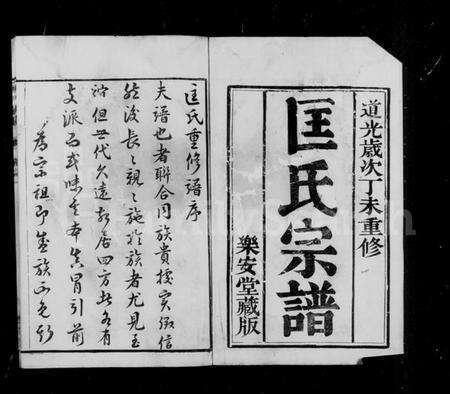 道光歲次丁未重修
匡氏宗譜
樂安堂藏版
匡氏重修譜序
夫譜也者聯合同族貴援實徵信
然後長〻親〻施於族者尤見至
但世代久遠散居四方者有
支派而或味其本冒引前
為宗祖即茲族而